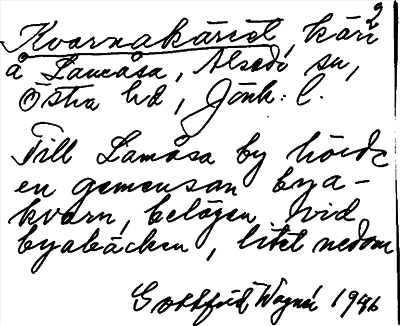 2
Kvarnakärret, kärr
å Lamåsa, Alseda sn,
Östra hd, Jönk. l.
Till Lamåsa by hörde
en gemensam bya-
kvarn, belägen vid
byabäcken, litet nedom
Gottfrid Wagnér 1946